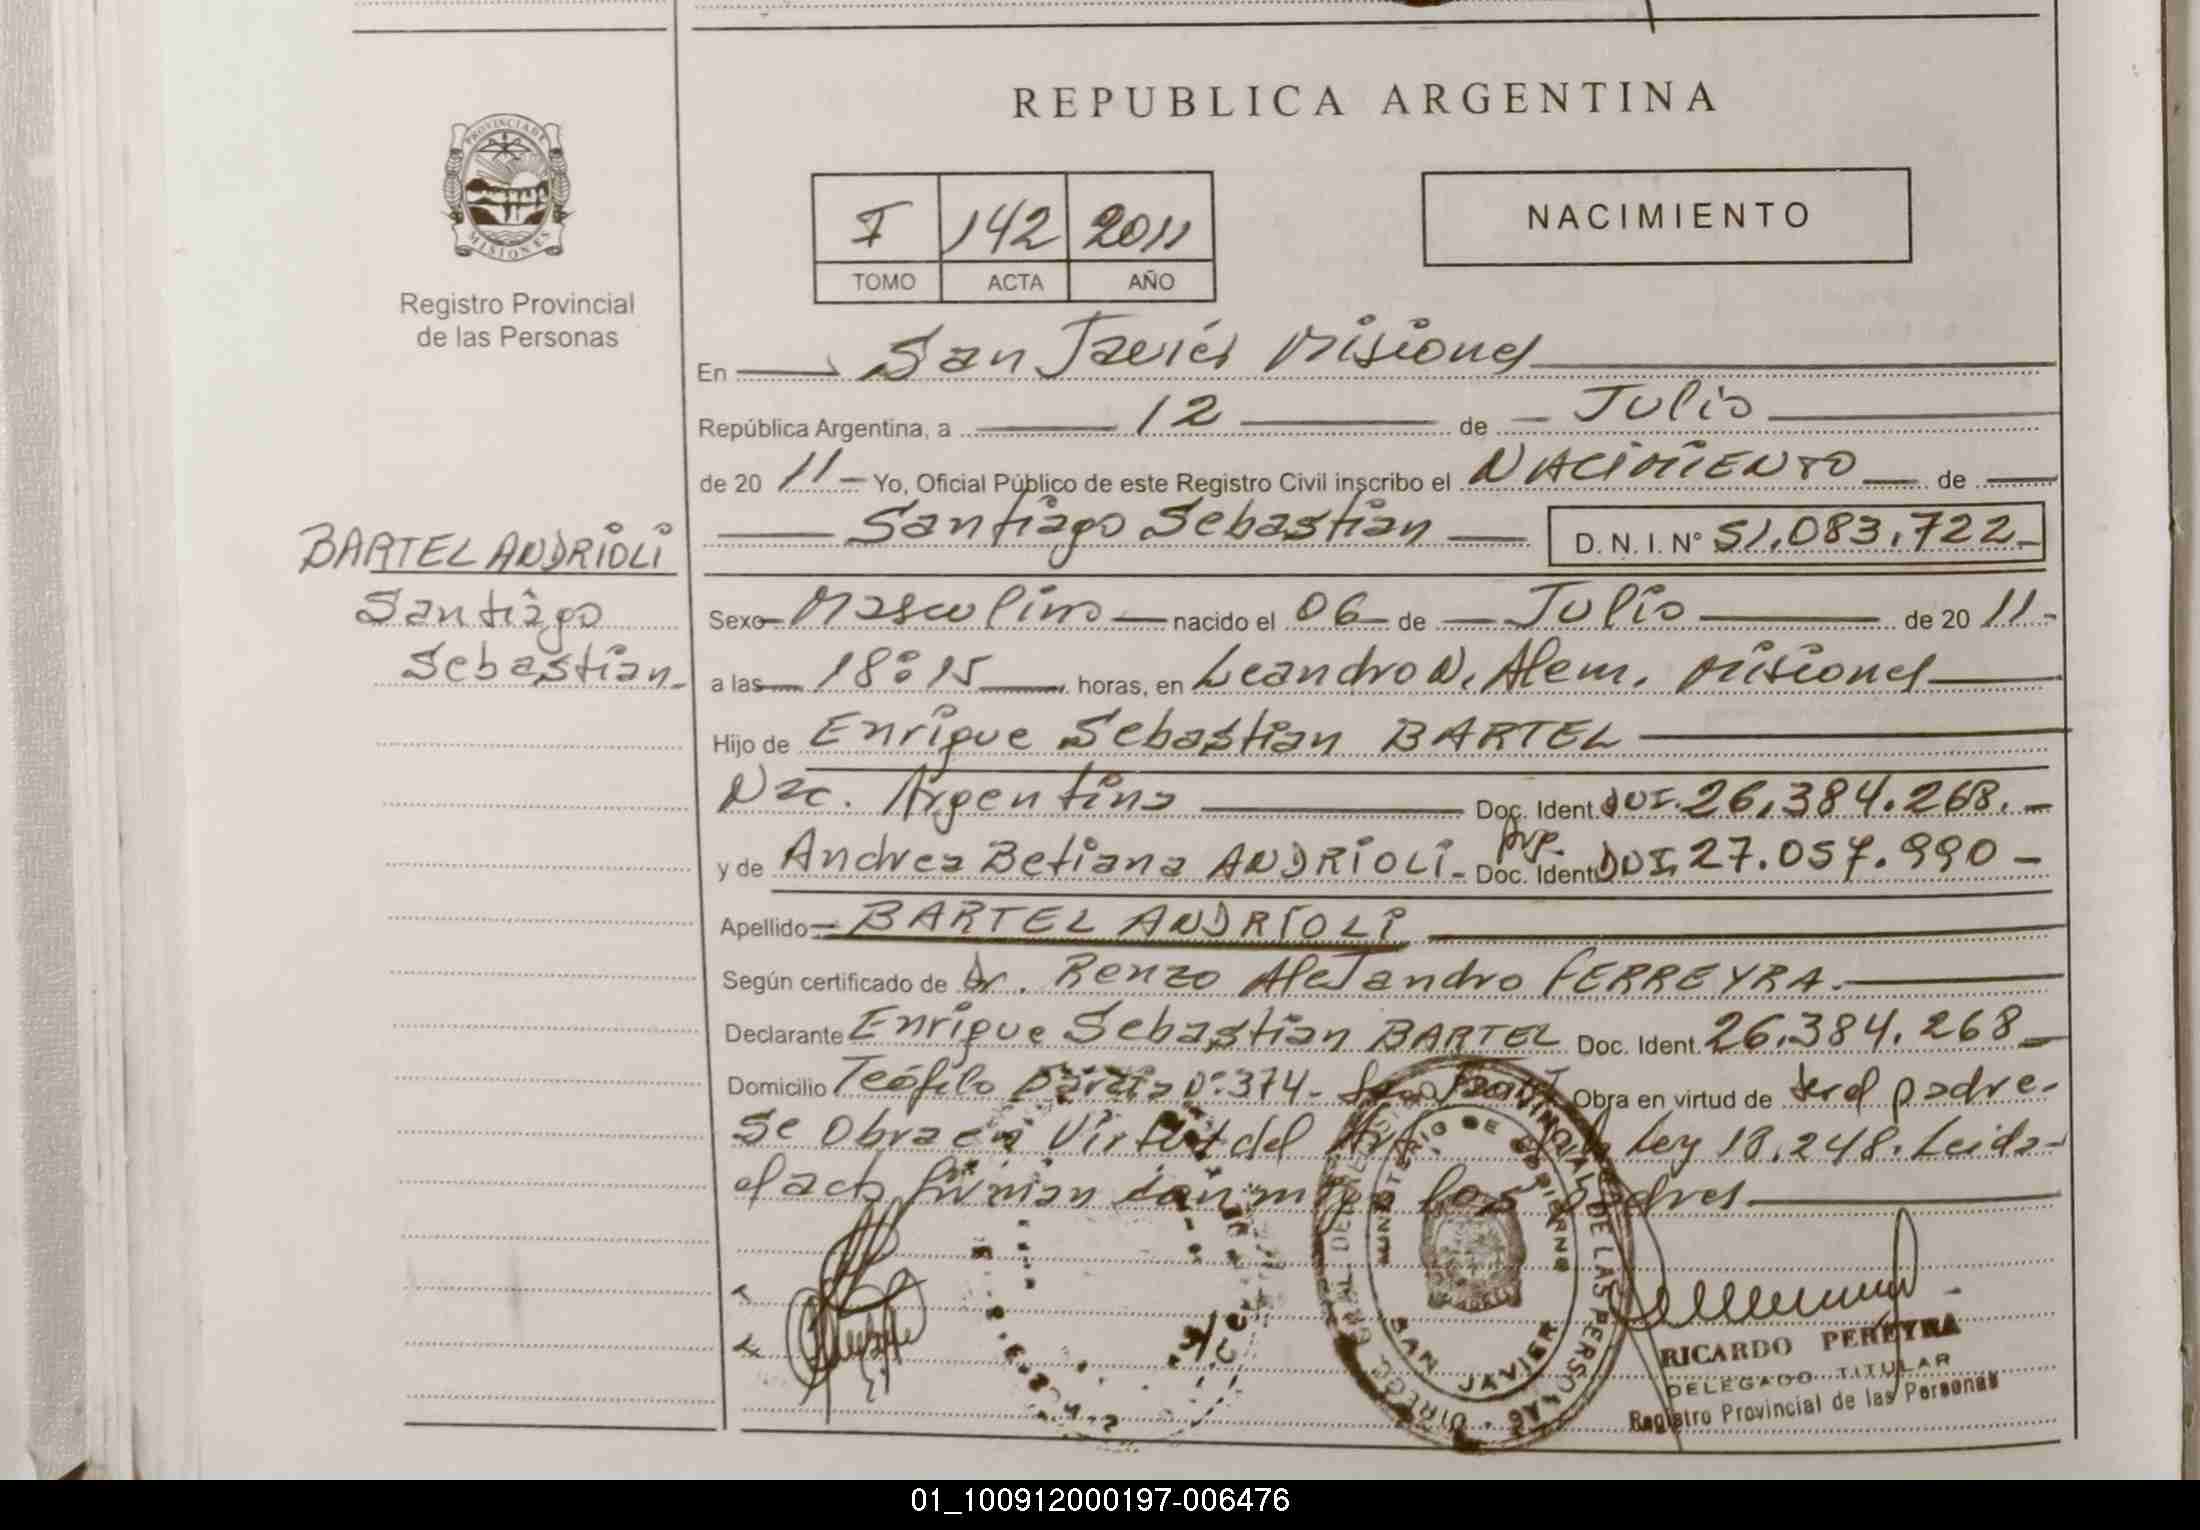 REPUBLICA ARGENTINA
PROVINCIA DE MISIONES
Registro Provincial
de las Personas
I 142 2011
TOMO ACTA AÑO
NACIMIENTO
En San Javier Misiones
República Argentina, a 12 de Julio
de 20 11 - Yo, Oficial Público de este Registro Civil inscribo el NACIMIENTO de
Santiago Sebastian D. N. I. N° 51.083.722-
BARTEL ANDRIOLI
Santiago
Sebastian
Sexo Masculino nacido el 06 de Julio de 20 11-
a las 18:15 horas, en Leandro N. Alem. Misiones
Hijo de Enrique Sebastian BARTEL
Nac. Argentina Doc. Ident. DUI. 26.384.268.-
y de Andrea Betiana ANDRIOLI - Arg. Doc. Ident. DUI. 27.057.990 -
Apellido BARTEL ANDRIOLI
Según certificado de Dr. Renzo Alejandro FERREYRA.
Declarante Enrique Sebastian BARTEL Doc. Ident. 26.384.268
Domicilio Teófilo N°: 374- Obra en virtud de ser el padre-
Se Obra en Virtud del Art. Ley 18.248. Leida
el acta firman conmigo los padres
DIRECC. GRAL. DEL REG. PROVINCIAL DE LAS PERSONAS
MINISTERIO DE GOBIERNO
SAN JAVIER
RICARDO PEREYRA
DELEGADO TITULAR
Registro Provincial de las Personas
01_100912000197-006476